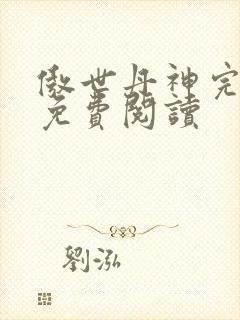 傲世丹神完
免費閱讀
劉泓